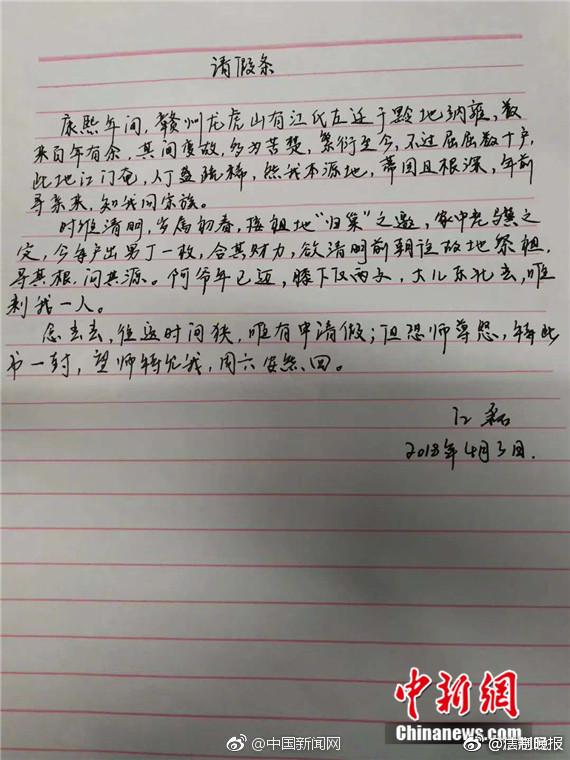 请假条
康熙年间，赣州龙虎山有江氏左迁于黔地纳雍，数
来百年有余，其间变故，多为苦楚，繁衍至今，不过屈屈数十户，
此地江门奄，人丁益疏稀，然我本源地，蒂固且根深，年前
寻亲来，知我同宗族。
时维清明，岁属初春，接祖地“归集”之邀，家中老骥之
定，今每户出男丁一枚，合其财力，欲清明前朝往故地祭祖，
寻其根，问其源。阿爷年已迈，膝下仅两女，大儿东北去，唯
剩我一人。
念去去，往返时间狭，唯有申请假；但恐师尊怒，特此
书一封，望师特允我，周六安然回。
江磊
2018年4月3日.
中新网
Chinanews.com
@中国新闻网
@法制晚报